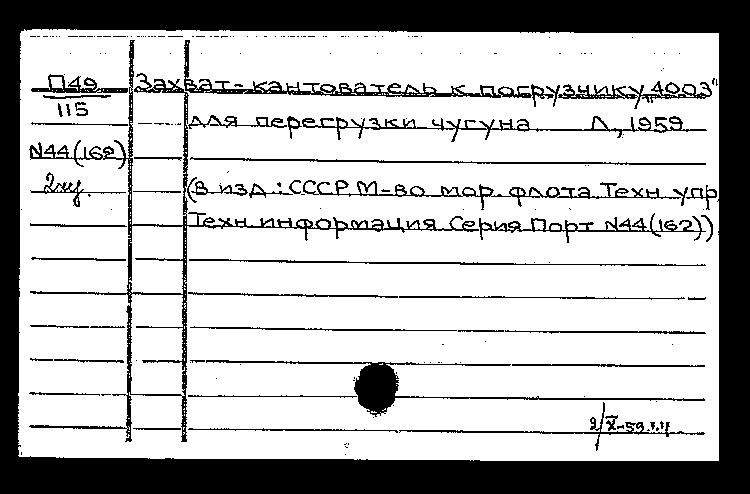 П49
115
N44(162)
2 экз.
Захват-кантователь к погрузнику „4003"
для перегрузки чугуна Л., 1959
(В изд: СССР. М-во мор. флота. Техн упр.
Техн информация Серия Порт N44(162))
2/X-59